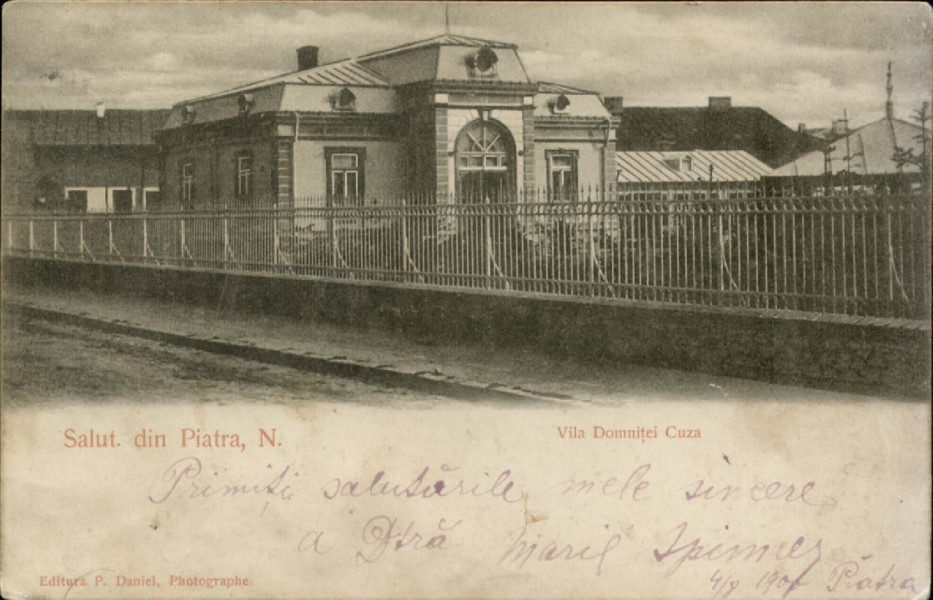 Salut. din Piatra, N.
Vila Domniței Cuza
Primiți salutările mele sincere
a Dtră Marie Spinner
Piatra
Editura P. Daniel, Photographe.